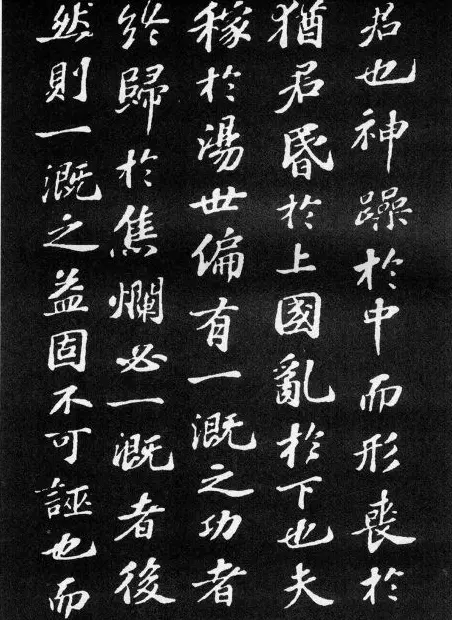 君也神躁於中而形喪於
猶君昏於上國亂於下也夫
稼於湯世偏有一溉之功者
終歸於焦爛必一溉者後
然則一溉之益固不可誣也而